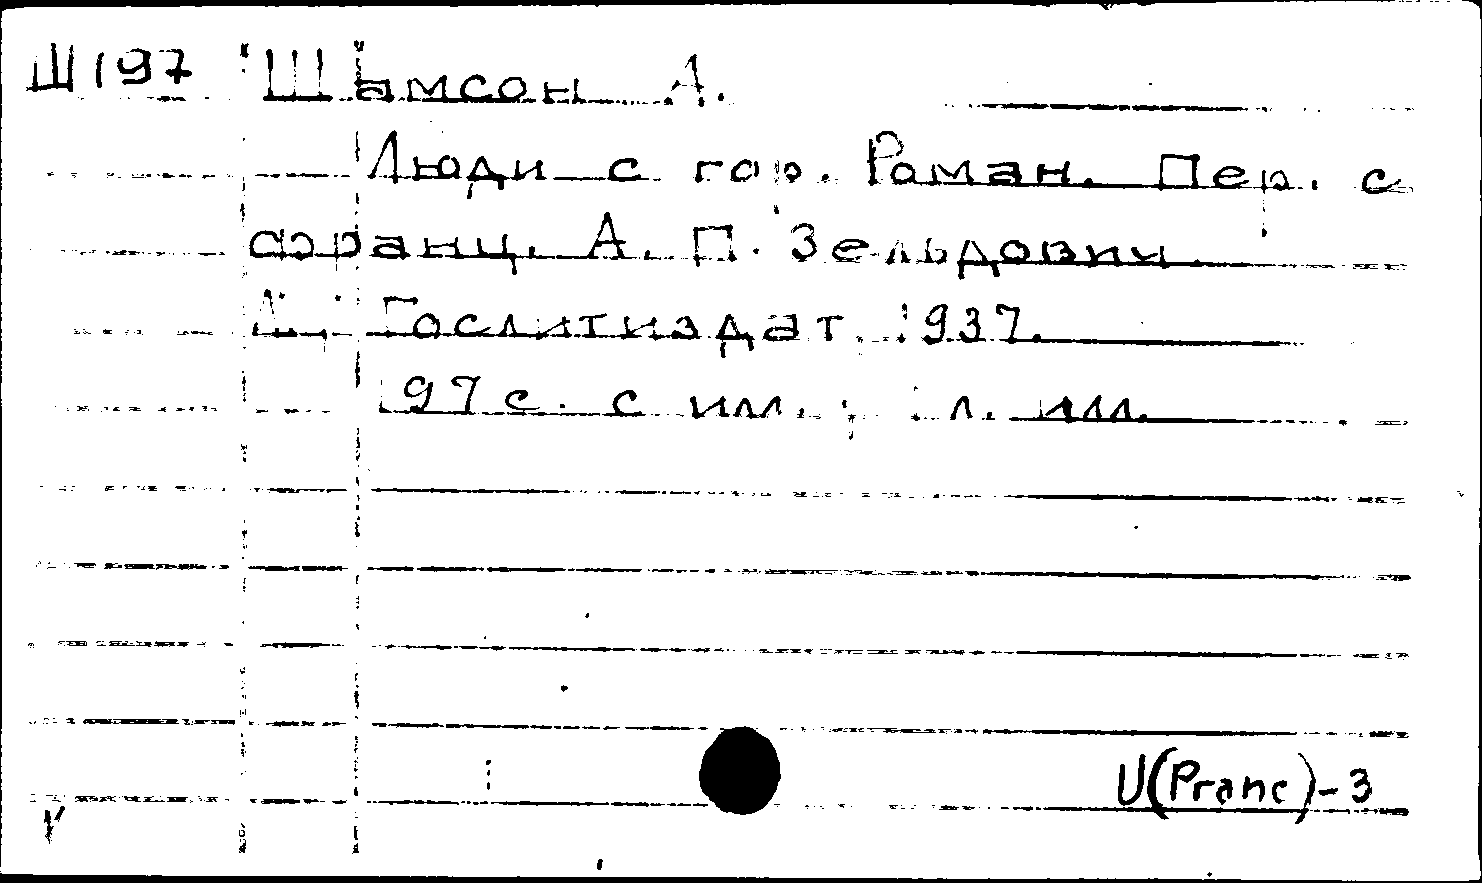 Ш197 Шамсон А.
Люди с гор. Роман. Пер. с
франц. А. П. Зельдович.
Л., Гослитиздат, 1937.
197 с. с илл.; 1 л. илл.
U(Pranc)-3